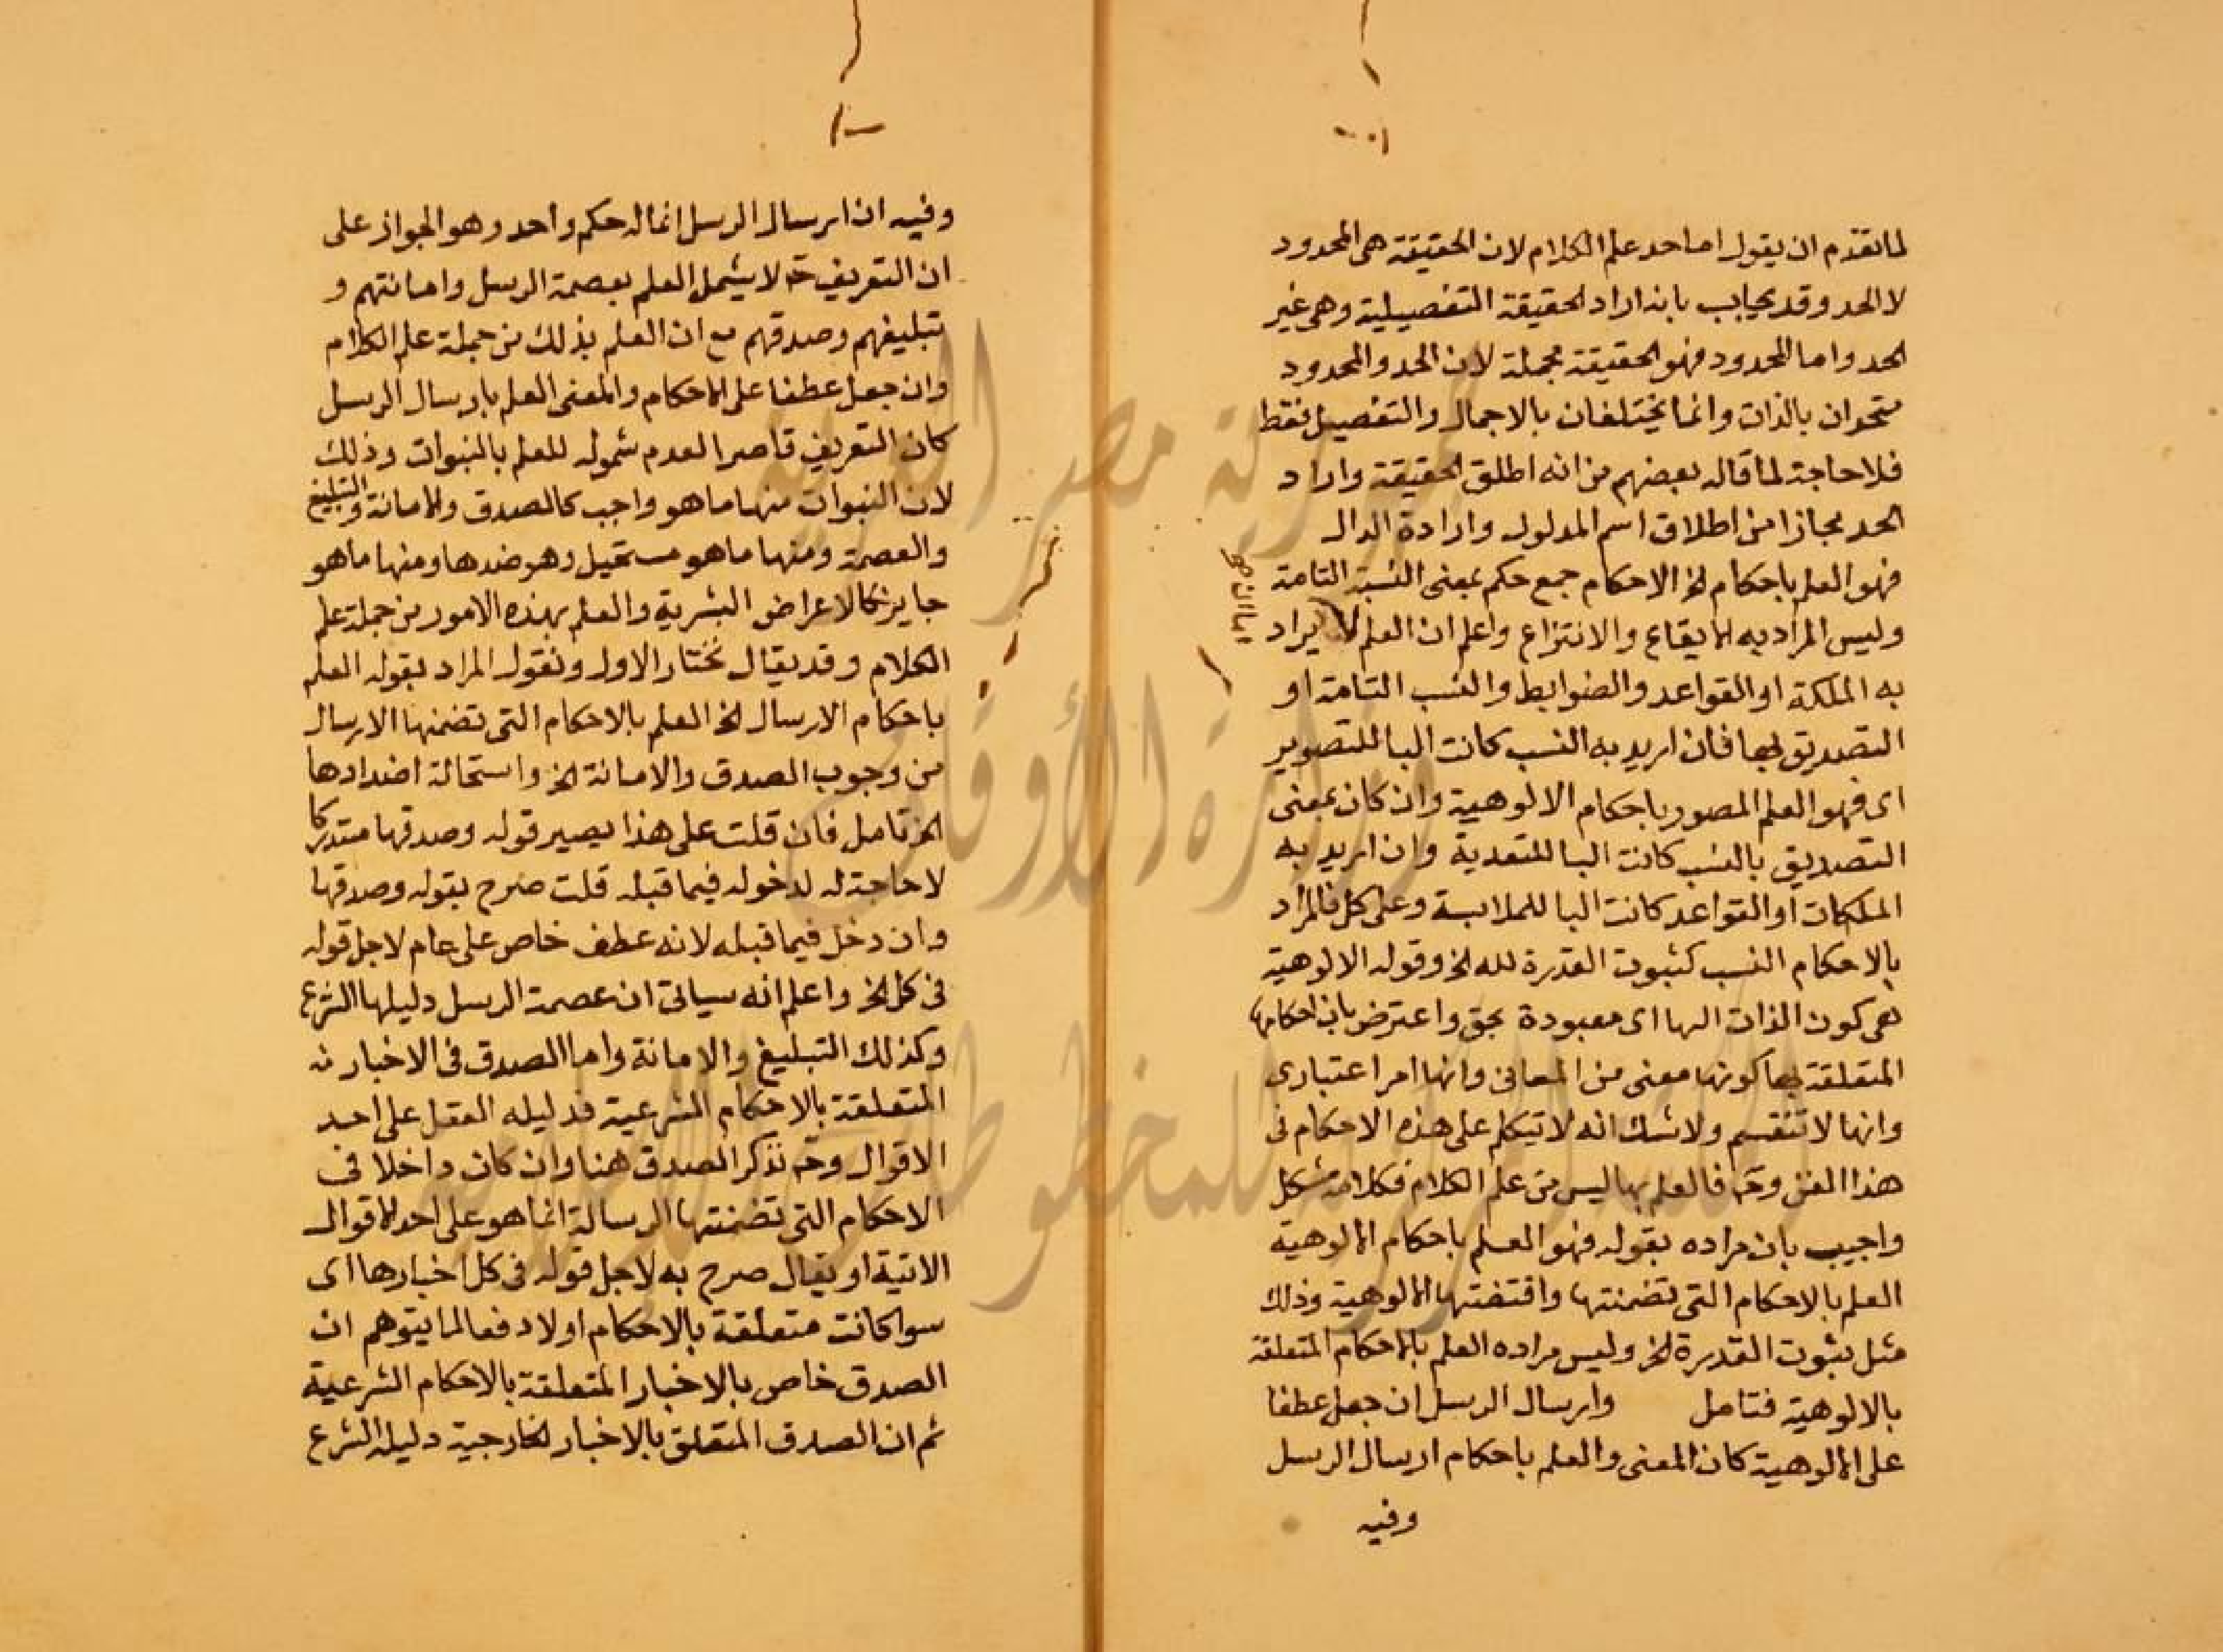 لما تقدم ان يقول اما حد علم الكلام لان الحقيقة هي المحدود
لا الحد وقد يجاب بانه اراد الحقيقة التفصيلية وهي غير
الحد واما المحدود فهو الحقيقة مجملة لان الحد والمحدود
متحدان بالذات وانما يختلفان بالاجمال والتفصيل فقط
فلا حاجة لما قاله بعضهم من انه اطلق الحقيقة واراد
الحد مجازا من اطلاق اسم المدلول وارادة الدال
فهو العلم باحكام الخ الاحكام جمع حكم بمعنى النسبة التامة
وليس المراد به الايقاع والانتزاع واعلم ان العلم يراد
به الملكة او القواعد والضوابط والنسب التامة او
التصديق بها فان اريد به النسب كانت البا للتصوير
اى فهو العلم المصور باحكام الالوهية وان كان بمعنى
التصديق بالنسب كانت البا للتعدية وان اريد به
الملكات او القواعد كانت البا للملابسة وعلى كل فالمراد
بالاحكام النسب كثبوت القدرة لله الخ وقوله الالوهية
هي كون الذات الها اى معبودة بحق واعترض بان احكامها
المتعلقة بها كونها معنى من المعانى وانها امر اعتبارى
وانها لا تنقسم ولا شك انه لا تيكلم على هذه الاحكام فى
هذا الفن وح فالعلم بها ليس من علم الكلام فكلامه مشكل
واجيب بان مراده بقوله فهو العلم باحكام الالوهية
العلم بالاحكام التى تضمنتها واقتضتها الالوهية وذلك
مثل ثبوت القدرة الخ وليس مراده العلم بالاحكام المتعلقة
بالالوهية فتامل وارسال الرسل ان جعل عطفا
على الالوهية كان المعنى والعلم باحكام ارسال الرسل
وفيه
وفيه ان ارسال الرسل انما له حكم واحد وهو الجواز على
ان التعريف ح لا يشمل العلم بعصمة الرسل وامانتهم و
تبليغهم وصدقهم مع ان العلم بذلك من جملة علم الكلام
وان جعل عطفا على الاحكام والمعنى العلم بارسال الرسل
كان التعريف قاصرا لعدم شموله للعلم بالنبوات وذلك
لان النبوات منها ما هو واجب كالصدق والامانة والتبليغ
والعصمة ومنها ما هو مستحيل وهو ضدها ومنها ما هو
جايز كالاعراض البشرية والعلم بهذه الامور من جملة علم
الكلام وقد يقال نختار الاول ونقول المراد بقوله العلم
باحكام الارسال الخ العلم بالاحكام التى تضمنها الارسال
من وجوب الصدق والامانة الخ واستحالة اضدادها
الخ تامل فان قلت على هذا يصير قوله وصدقها مستدركا
لا حاجة له لدخوله فيما قبله قلت صرح بقوله وصدقها
وان دخل فيما قبله لانه عطف خاص على عام لاجل قوله
فى كل الخ واعلم انه سياتى ان عصمة الرسل دليلها الشرع
وكذلك التبليغ والامانة واما الصدق فى الاخبار
المتعلقة بالاحكام الشرعية فدليله العقل على احد
الاقوال وح فذكر الصدق هنا وان كان داخلا فى
الاحكام التى تضمنتها الرسالة انما هو على احد الاقوال
الاتية او يقال صرح به لاجل قوله فى كل اخبارها اى
سوا كانت متعلقة بالاحكام اولا دفعا لما يتوهم ان
الصدق خاص بالاخبار المتعلقة بالاحكام الشرعية
ثم ان الصدق المتعلق بالاخبار الخارجية دليله الشرع
جمهورية مصر العربية
وزارة الأوقاف